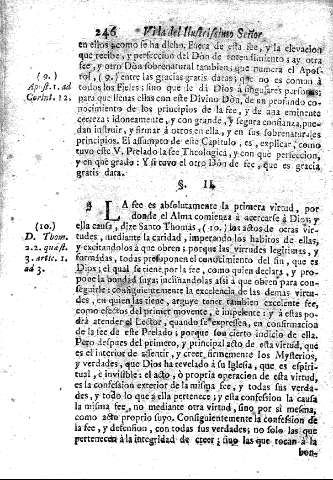 246 Vida del Ilustrissimo Señor
en ellos, como se ha dicho. Fuera de esta fee, y la elevacion
que recibe, y perfeccion del Dòn de entendimiento; ay otra
fee, y otro Dòn sobrenatural tambien, que numera el Apos-
tol, (9.) entre las gracias gratis datas; que no es comun à
todos los Fieles; sino que le dà Dios à singulares personas;
para que llenas ellas con este Divino Dòn, de un profundo co-
nocimiento de los principios de la fee, y de una eminente
certeza; idoneamente, y con grande, y segura confianza, pue-
dan instruir, y firmar à otros en ella, y en sus sobrenaturales
principios. El assumpto de este Capitulo, es, explicar, como
tuvo este V. Prelado la fee Theologica, y con que perfeccion,
y en què grado: Y si tuvo el otro Dòn de fee, que es gracia
gratis data.
(9.)
Apost. 1. ad
Corint. 12.
§. II.
LA fee es absolutamente la primera virtud, por
donde el Alma comienza à acercarse à Dios; y
ella causa, dize Santo Thomàs, (10.) los actos de otras vir-
tudes, mediante la caridad, imperando los habitos de ellas,
y excitandolos à que obren; porque las virtudes legitimas, y
formadas, todas proponen el conocimiento del fin, que es
Dios; el qual se tiene por la fee, como quien declara, y pro-
pone la bondad suya; inclinandolas assi à que obren para con-
seguirle: consiguientemente la excelencia de las demàs virtu-
des, en quien las tiene, arguye tener tambien excelente fee,
como efectos del primer movente, è impelente: y à estas po-
drà atender el Lector, quando se expressen, en confirmacion
de la fee de este Prelado; porque son cierto indicio de ella.
Pero despues del primero, y principal acto de esta virtud, que
es el interior de assentir, y creer, firmemente los Mysterios,
y verdades, que Dios ha revelado à su Iglesia, que es espiri-
tual, è invisible; el acto, ò propria operacion de esta virtud,
es la confession exterior de la misma fee, y todas sus verda-
des, y todo lo que à ella pertenece; y esta confession la causa
la misma fee, no mediante otra virtud, sino por si mesma,
como acto proprio suyo. Consiguientemente la confession de
la fee, y defension, con todas sus verdades; no solo las que
pertenecen à la integridad de creer, sino las que tocan à la
bon-
(10.)
D. Thom.
2. 2. quæst.
3. artic. 1.
ad 3.